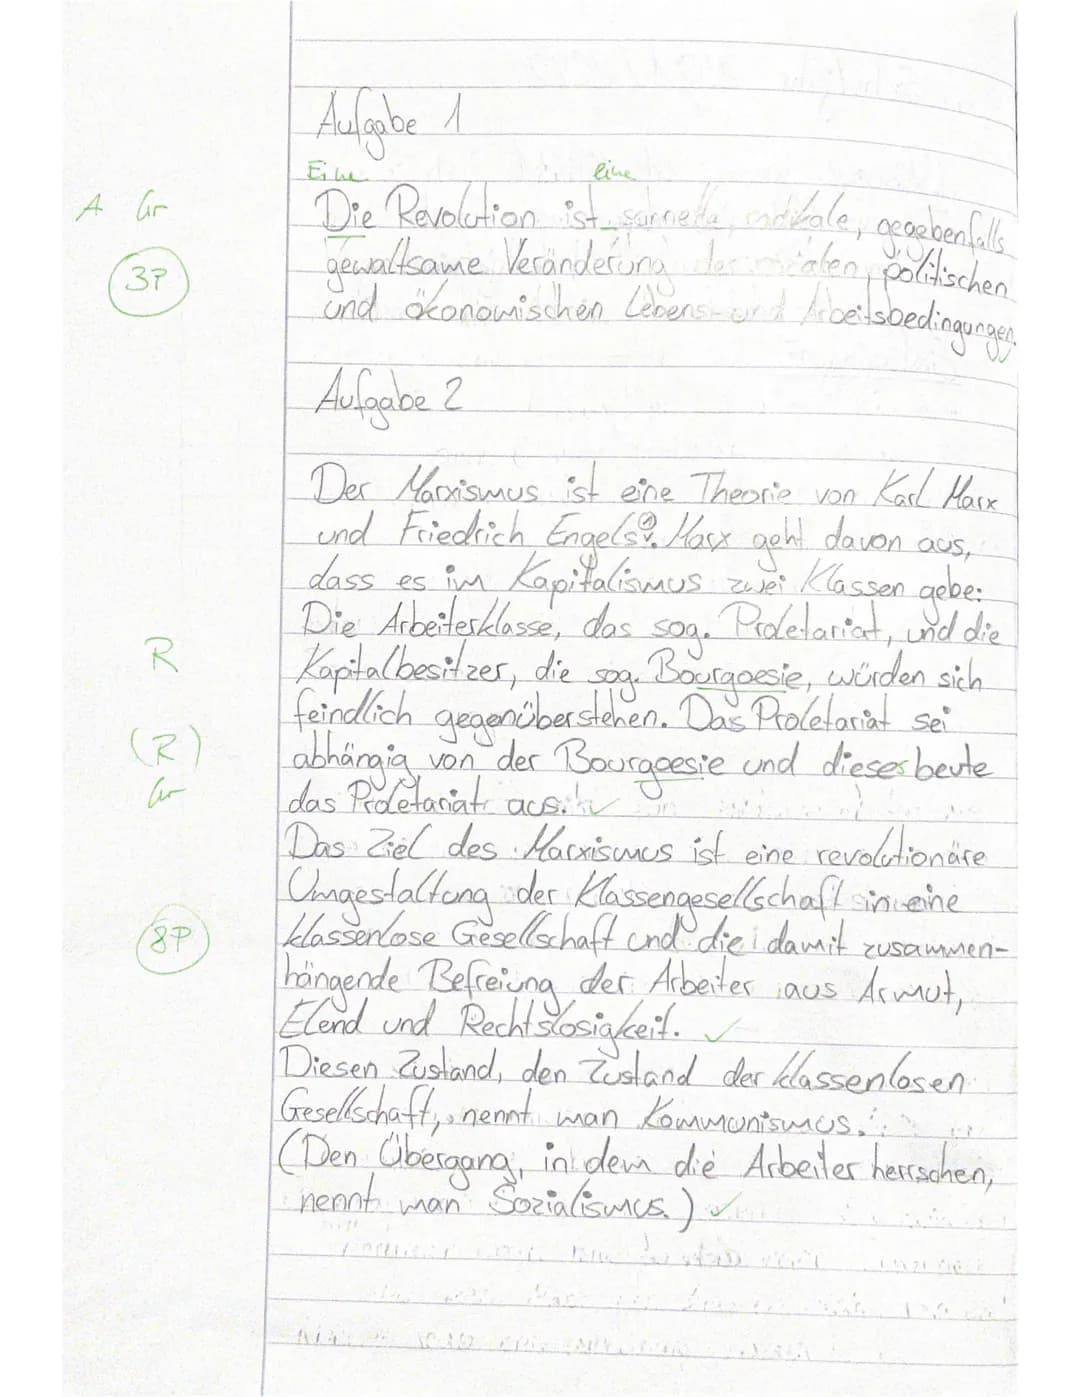 Aufgabe 1
Eine eine
A Gr Die Revolution ist radikale, gegebenfalls
3P gewaltsame Veränderung der sozialen, politischen
und ökonomischen Lebens- und Arbeitsbedingungen.
Aufgabe 2
Der Marxismus ist eine Theorie von Karl Marx
und Friedrich Engels. Marx geht davon aus,
dass es im Kapitalismus zwei Klassen gebe:
Die Arbeiterklasse, das sog. Proletariat, und die
R Kapitalbesitzer, die sog. Bourgoesie, würden sich
feindlich gegenüberstehen. Das Proletariat sei
(R) abhängig von der Bourgoesie und dieses beute
Gr das Proletariat aus.
Das Ziel des Marxismus ist eine revolutionäre
Umgestaltung der Klassengesellschaft in eine
8P klassenlose Gesellschaft und die damit zusammen-
hängende Befreiung der Arbeiter aus Armut,
Elend und Rechtslosigkeit.
Diesen Zustand, den Zustand der klassenlosen
Gesellschaft, nennt man Kommunismus.
(Den Übergang, in dem die Arbeiter herrschen,
nennt man Sozialismus.)